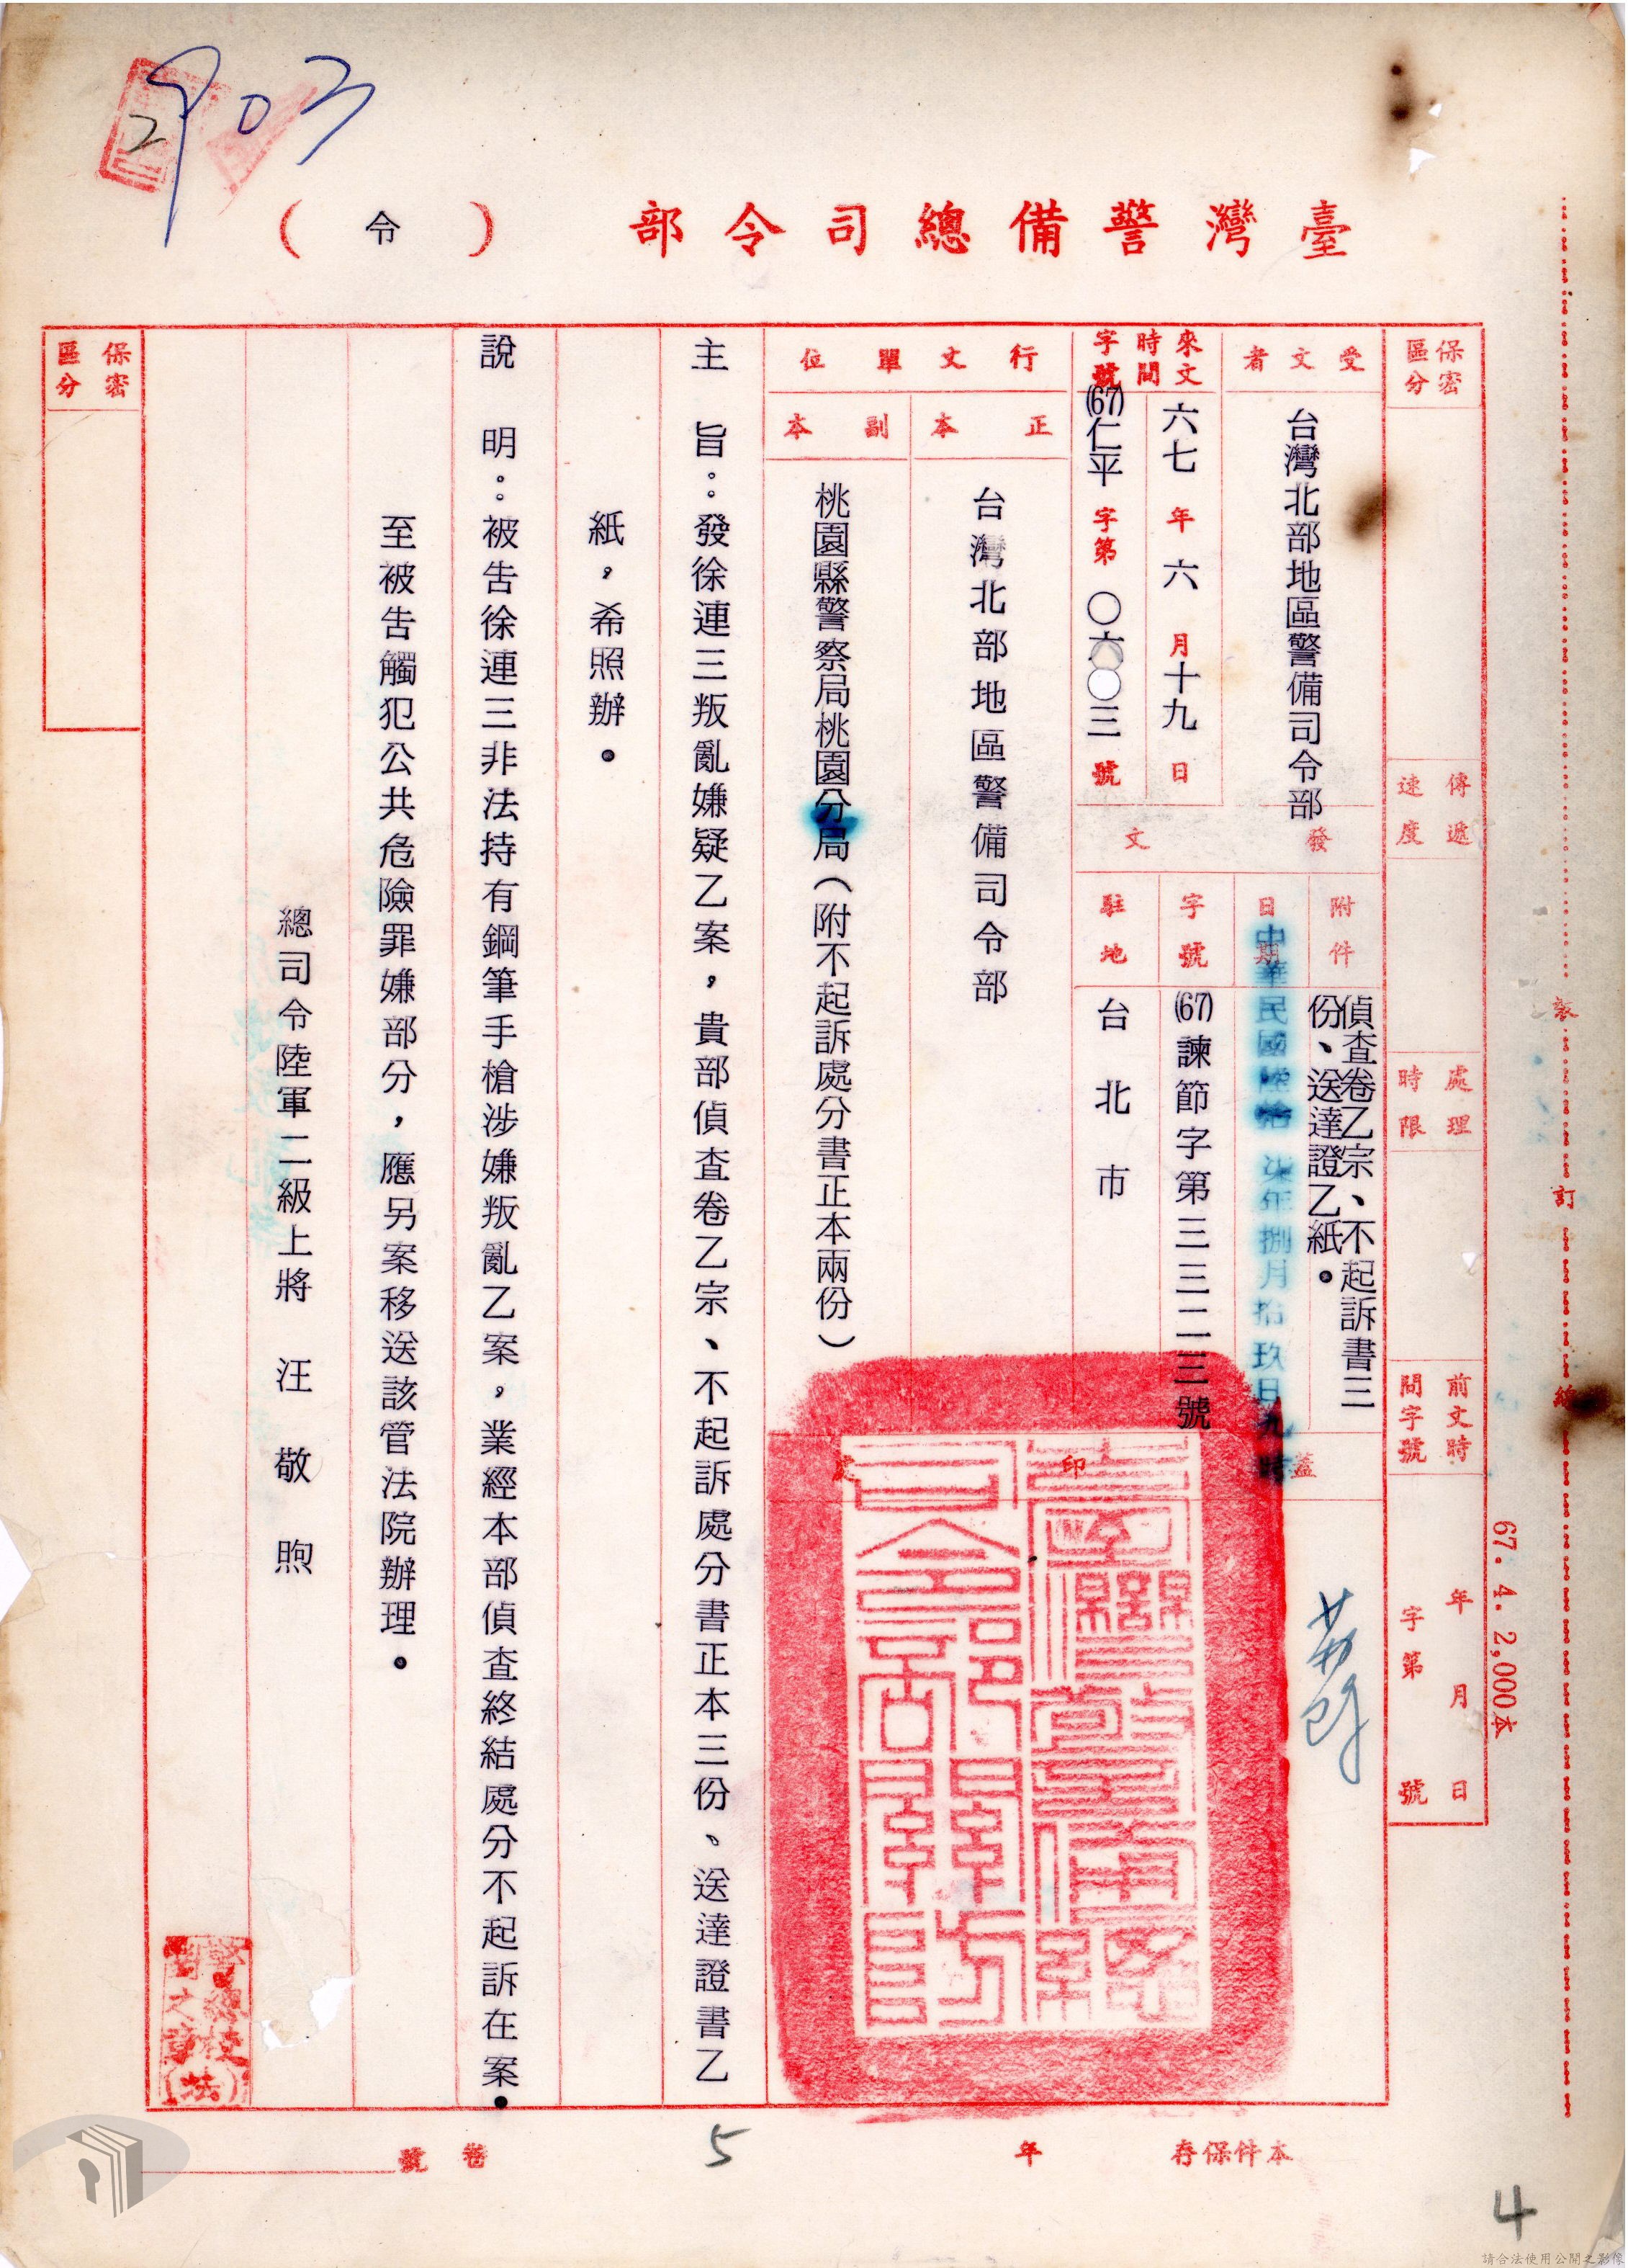 903
2
臺灣警備總司令部（令）
67．4．2,000本
裝訂線
保密區分
傳遞速度
處理時限
前文時間字號
年月日
字第號
受文者
台灣北部地區警備司令部
來文時間字號
六七年六月十九日
(67)仁平字第〇六〇〇三號
發文
附件
偵查卷乙宗、不起訴書三份、送達證乙紙。
日期
中華民國陸拾柒年捌月拾玖日九時
字號
(67)諫節字第三三二三號
駐地
台北市
蓋印處
臺灣警備總司令部關防
行文單位
正本
台灣北部地區警備司令部
副本
桃園縣警察局桃園分局（附不起訴處分書正本兩份）
主旨：發徐連三叛亂嫌疑乙案，貴部偵查卷乙宗、不起訴處分書正本三份、送達證書乙
紙，希照辦。
說明：被告徐連三非法持有鋼筆手槍涉嫌叛亂乙案，業經本部偵查終結處分不起訴在案。
至被告觸犯公共危險罪嫌部分，應另案移送該管法院辦理。
總司令陸軍二級上將汪敬煦
保密區分
本件保存5年
卷號
4
請合法使用公開之影像